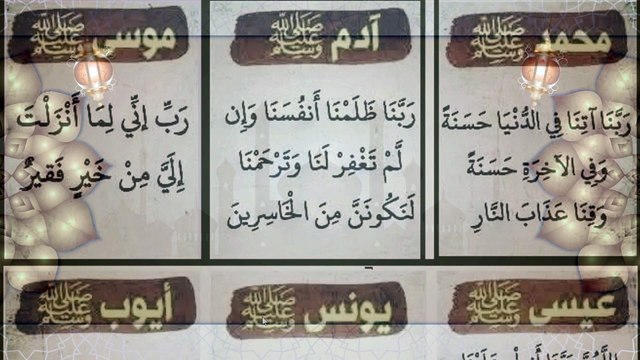 محمد ﷺ
رَبَّنَا آتِنَا فِي الدُّنْيَا حَسَنَةً
وَفِي الآخِرَةِ حَسَنَةً
وَقِنَا عَذَابَ النَّارِ
آدم ﷺ
رَبَّنَا ظَلَمْنَا أَنفُسَنَا وَإِن
لَّمْ تَغْفِرْ لَنَا وَتَرْحَمْنَا
لَنَكُونَنَّ مِنَ الْخَاسِرِينَ
موسى ﷺ
رَبِّ إِنِّي لِمَا أَنْزَلْتَ
إِلَيَّ مِنْ خَيْرٍ فَقِيرٌ
عيسى ﷺ
يونس ﷺ
أيوب ﷺ